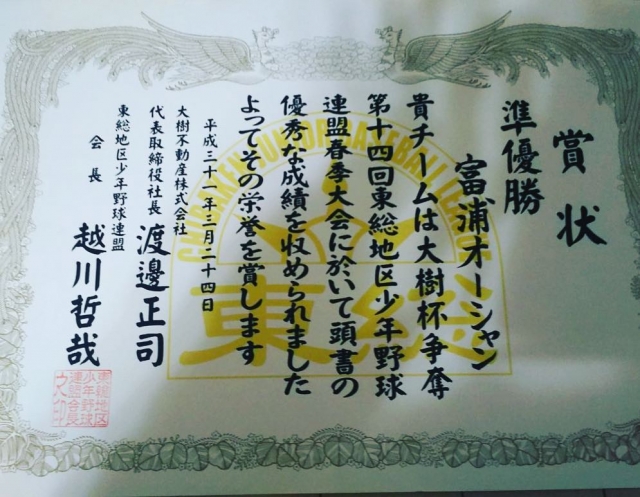 賞状
準優勝
富浦オーシャン
貴チームは大樹杯争奪
第十四回東総地区少年野球
連盟春季大会に於いて頭書の
優秀な成績を収められました
よってその栄誉を賞します
平成三十一年三月二十四日
大樹不動産株式会社
代表取締役社長 渡邊正司
東総地区少年野球連盟
会長 越川哲哉
東総
東総地区
少年野球
連盟会長